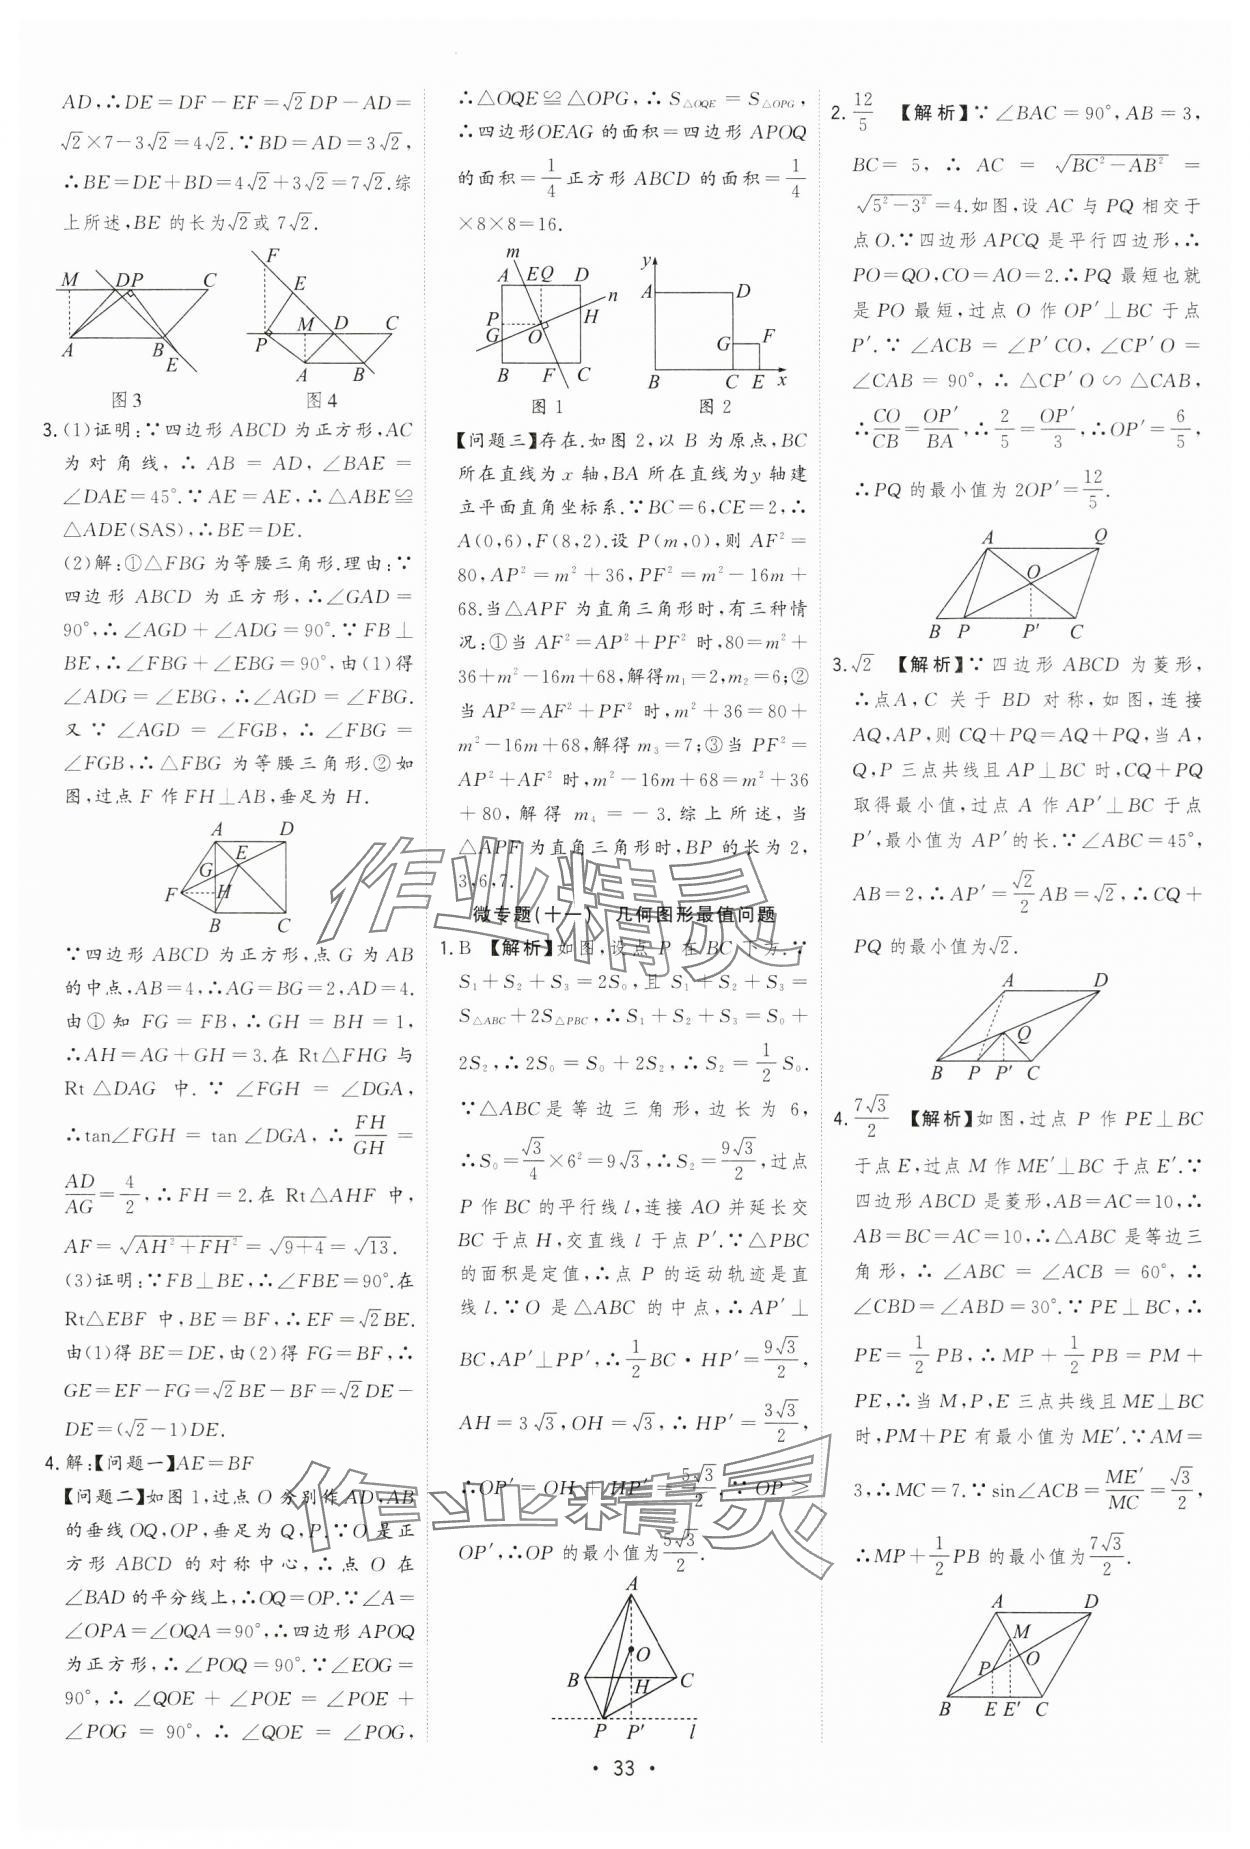 AD,∴DE=DF-EF=√2DP-AD=
√2×7-3√2=4√2.∵BD=AD=3√2,
∴BE=DE+BD=4√2+3√2=7√2.综
上所述,BE 的长为√2或 7√2.
M D P C
A B E
图 3
F
E
M D C
P
A B
图 4
3.(1)证明:∵四边形 ABCD 为正方形,AC
为对角线,∴AB=AD,∠BAE=
∠DAE=45°.∵AE=AE,∴△ABE≌
△ADE(SAS),∴BE=DE.
(2)解:①△FBG 为等腰三角形.理由:∵
四边形 ABCD 为正方形,∴∠GAD=
90°,∴∠AGD+∠ADG=90°.∵FB⊥
BE,∴∠FBG+∠EBG=90°,由(1)得
∠ADG=∠EBG,∴∠AGD=∠FBG.
又∵∠AGD=∠FGB,∴∠FBG=
∠FGB,∴△FBG 为等腰三角形.②如
图,过点 F 作 FH⊥AB,垂足为 H.
A D
G E
F H
B C
∵四边形 ABCD 为正方形,点 G 为 AB
的中点,AB=4,∴AG=BG=2,AD=4.
由①知 FG=FB,∴GH=BH=1,
∴AH=AG+GH=3.在 Rt△FHG 与
Rt△DAG 中.∵∠FGH=∠DGA,
∴tan∠FGH=tan∠DGA,∴FH/GH=
AD/AG=4/2,∴FH=2.在 Rt△AHF 中,
AF=√(AH²+FH²)=√(9+4)=√13.
(3)证明:∵FB⊥BE,∴∠FBE=90°.在
Rt△EBF 中,BE=BF,∴EF=√2BE.
由(1)得 BE=DE,由(2)得 FG=BF,∴
GE=EF-FG=√2BE-BF=√2DE-
DE=(√2-1)DE.
4.解:【问题一】AE=BF
【问题二】如图 1,过点 O 分别作 AD,AB
的垂线 OQ,OP,垂足为 Q,P.∵O 是正
方形 ABCD 的对称中心,∴点 O 在
∠BAD 的平分线上,∴OQ=OP.∵∠A=
∠OPA=∠OQA=90°,∴四边形 APOQ
为正方形,∴∠POQ=90°.∵∠EOG=
90°,∴∠QOE+∠POE=∠POE+
∠POG=90°,∴∠QOE=∠POG,
∴△OQE≌△OPG,∴S△OQE=S△OPG,
∴四边形OEAG 的面积=四边形 APOQ
的面积=1/4正方形 ABCD 的面积=1/4
×8×8=16.
m
A E Q D
n
P H
G O
B F C
图 1
y
A D
G F
B C E x
图 2
【问题三】存在.如图 2,以 B 为原点,BC
所在直线为 x 轴,BA 所在直线为 y 轴建
立平面直角坐标系.∵BC=6,CE=2,∴
A(0,6),F(8,2).设 P(m,0),则 AF²=
80,AP²=m²+36,PF²=m²-16m+
68.当△APF 为直角三角形时,有三种情
况:①当 AF²=AP²+PF² 时,80=m²+
36+m²-16m+68,解得m₁=2,m₂=6;②
当 AP²=AF²+PF² 时,m²+36=80+
m²-16m+68,解得 m₃=7;③当 PF²=
AP²+AF² 时,m²-16m+68=m²+36
+80,解得 m₄=-3.综上所述,当
△APF 为直角三角形时,BP 的长为 2,
3,6,7.
微专题(十一) 几何图形最值问题
1.B 【解析】如图,设点 P 在 BC 下方.∵
S₁+S₂+S₃=2S₀,且 S₁+S₂+S₃=
S△ABC+2S△PBC,∴S₁+S₂+S₃=S₀+
2S₂,∴2S₀=S₀+2S₂,∴S₂=1/2S₀.
∵△ABC 是等边三角形,边长为 6,
∴S₀=√3/4×6²=9√3,∴S₂=9√3/2,过点
P 作 BC 的平行线 l,连接 AO 并延长交
BC 于点 H,交直线 l 于点 P′.∵△PBC
的面积是定值,∴点 P 的运动轨迹是直
线 l.∵O 是△ABC 的中点,∴AP′⊥
BC,AP′⊥PP′,∴1/2BC·HP′=9√3/2,
AH=3√3,OH=√3,∴HP′=3√3/2,
∴OP′=OH+HP′=5√3/2,∵OP≥
OP′,∴OP 的最小值为5√3/2.
A
O
B H C
P P′ l
2.12/5 【解析】∵∠BAC=90°,AB=3,
BC=5,∴AC=√(BC²-AB²)=
√(5²-3²)=4.如图,设 AC 与 PQ 相交于
点 O.∵四边形 APCQ 是平行四边形,∴
PO=QO,CO=AO=2.∴PQ 最短也就
是 PO 最短,过点 O 作 OP′⊥BC 于点
P′.∵∠ACB=∠P′CO,∠CP′O=
∠CAB=90°,∴△CP′O∽△CAB,
∴CO/CB=OP′/BA,∴2/5=OP′/3,∴OP′=6/5,
∴PQ 的最小值为 2OP′=12/5.
A Q
O
B P P′ C
3.√2 【解析】∵四边形 ABCD 为菱形,
∴点A,C 关于 BD 对称,如图,连接
AQ,AP,则 CQ+PQ=AQ+PQ,当 A,
Q,P 三点共线且 AP⊥BC 时,CQ+PQ
取得最小值,过点 A 作 AP′⊥BC 于点
P′,最小值为 AP′的长.∵∠ABC=45°,
AB=2,∴AP′=√2/2AB=√2,∴CQ+
PQ 的最小值为√2.
A D
Q
B P P′ C
4.7√3/2 【解析】如图,过点 P 作 PE⊥BC
于点 E,过点 M 作 ME′⊥BC 于点 E′.∵
四边形 ABCD 是菱形,AB=AC=10,∴
AB=BC=AC=10,∴△ABC 是等边三
角形,∴∠ABC=∠ACB=60°,∴
∠CBD=∠ABD=30°.∵PE⊥BC,∴
PE=1/2PB,∴MP+1/2PB=PM+
PE,∴当 M,P,E 三点共线且 ME⊥BC
时,PM+PE 有最小值为 ME′.∵AM=
3,∴MC=7.∵sin∠ACB=ME′/MC=√3/2,
∴MP+1/2PB 的最小值为7√3/2.
A D
M
P O
B E E′ C
• 33 •
作业精灵
作业精灵